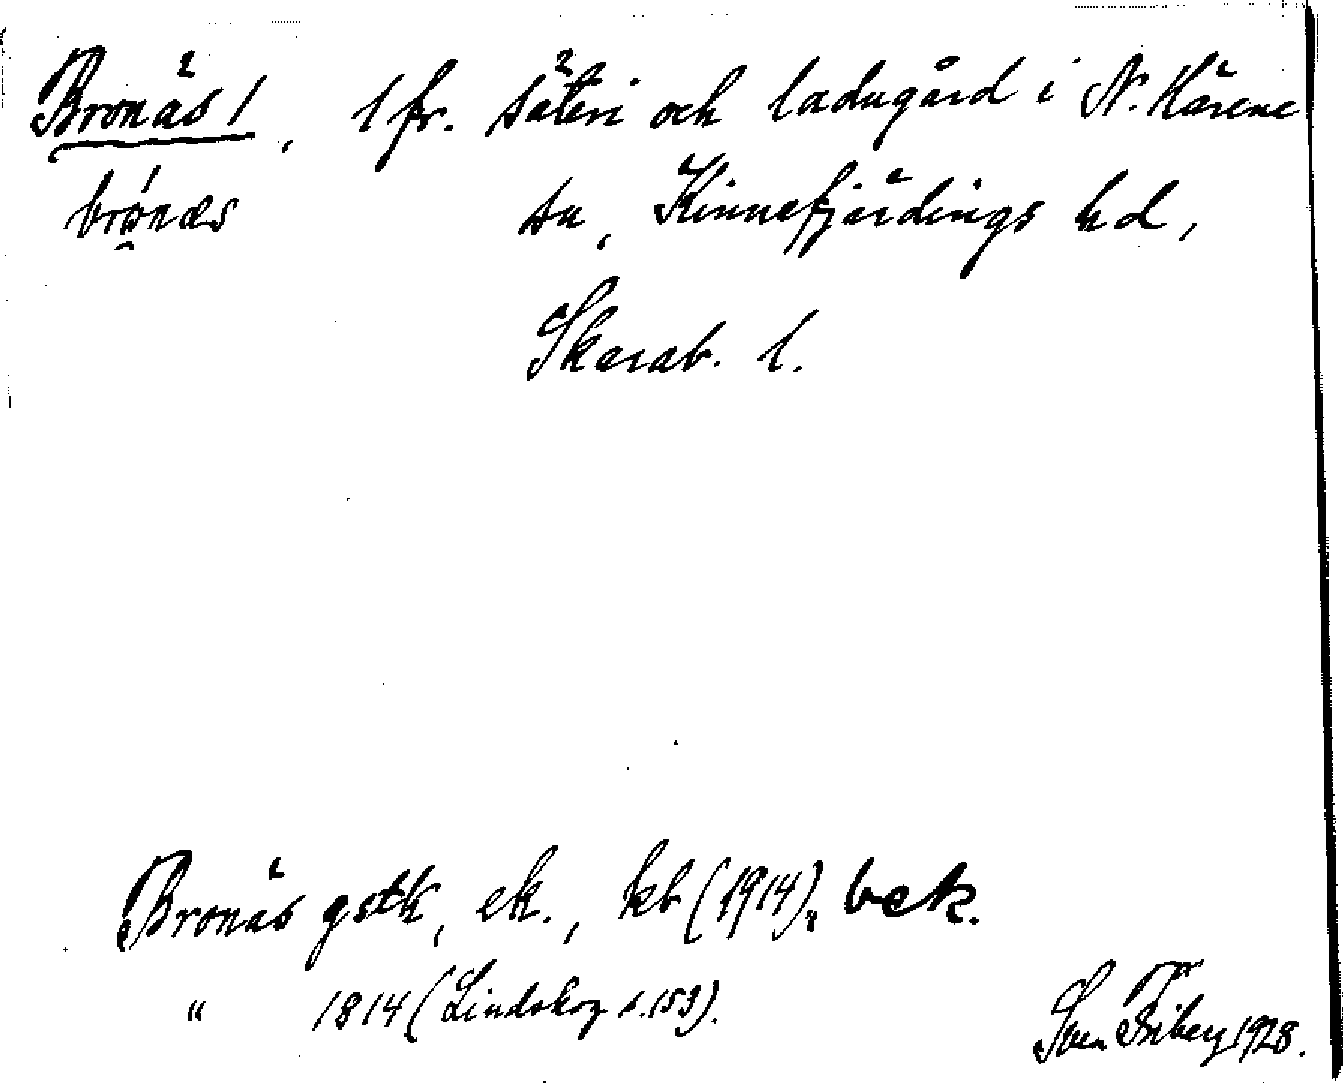 Bronäs 1, 1 fr. säteri och ladugård i N. Härene
sn, Kinnefjärdings hd,
Skarab. l.
Bronäs gstk, ek., kb (1914), bek.
" 1814 (Lindskog s. 153).
Sven Friberg 1928.